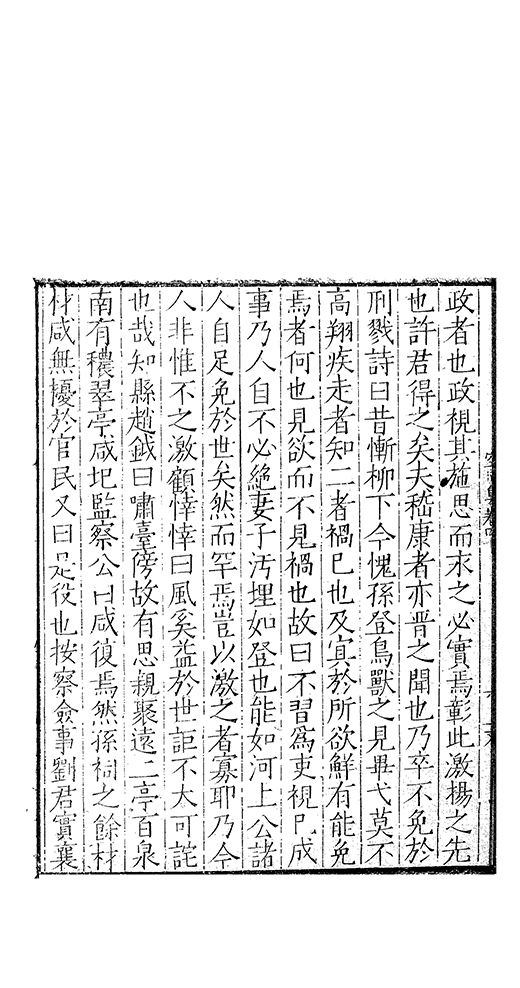 政者也政視其施思而求之必實焉彰此激揚之先
也許君得之矣夫嵇康者亦晋之聞也乃卒不免於
刑戮詩曰昔慚柳下今愧孫登鳥獸之見畢弋莫不
高翔疾走者知二者禍巳也及寘於所欲鮮有能免
焉者何也見欲而不見禍也故曰不習爲吏視巳成
事乃人自不必絶妻子汚埋如登也能如河上公諸
人自足免於世矣然而罕焉豈以激之者寡耶乃今
人非惟不之激顧悻悻曰風奚益於世詎不大可詫
也哉知縣趙鉞曰嘯臺傍故有思親聚遠二亭百泉
南有穠翠亭咸圯監察公曰咸復焉然孫祠之餘材
材咸無擾於官民又曰是役也按察僉事劉君實襄